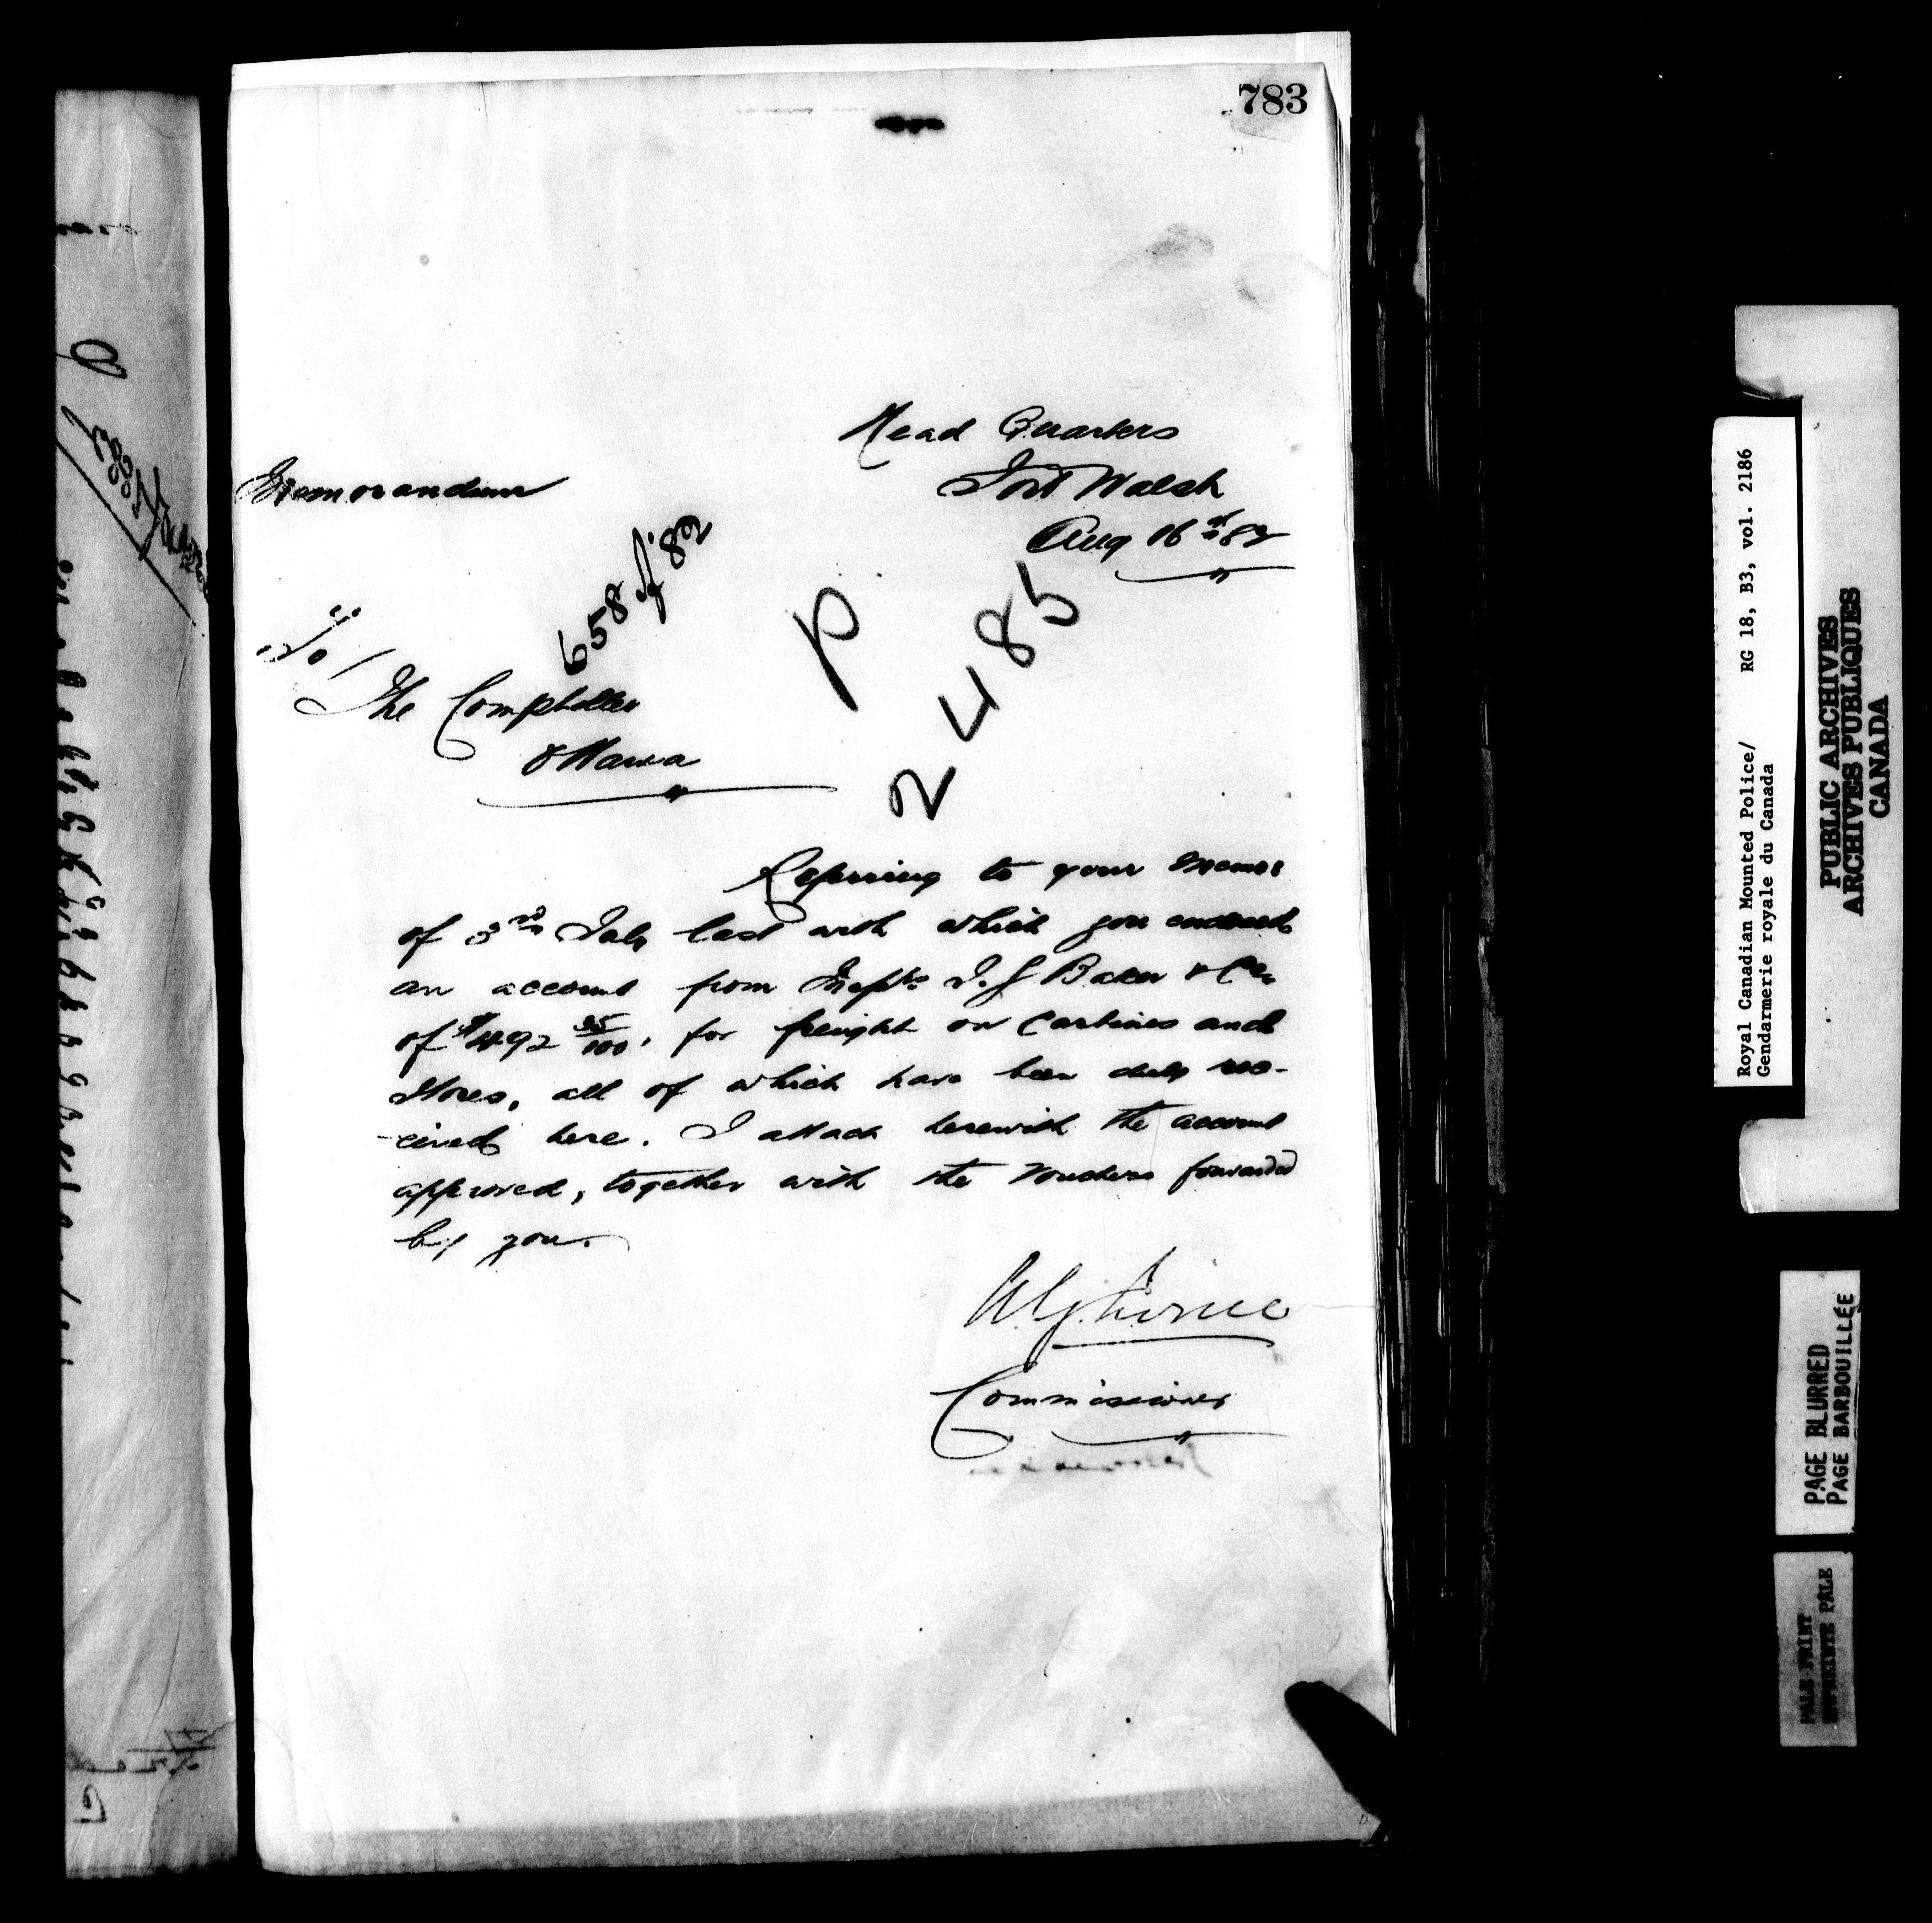 783
Head Quarters
Memorandum
Fort Walsh
Aug 16th 82
658 of '82
P
2485
To /
The Comptroller
Ottawa
Referring to your memo
of 3rd July last with which you enclosed
an account from Messrs I. G Baker & Co
of $492 35/100, for freight on Carbines and
Stores, all of which have been duly re-
-ceived here. I attach herewith the account
approved, together with the vouchers forwarded
by you.
A.G. Irvine
Commissioner
Royal Canadian Mounted Police/ RG 18, B3, vol. 2186
Gendarmerie royale du Canada
PUBLIC ARCHIVES
ARCHIVES PUBLIQUES
CANADA
PAGE BLURRED
PAGE BARBOUILLÉE
PALE PRINT
IMPRIMERIE PÂLE